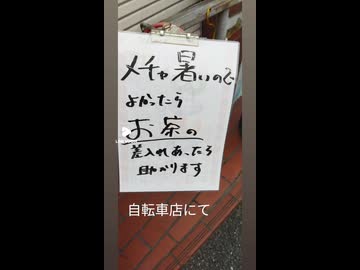 メチャ暑いので
よかったら
お茶の
差入れあったら
助かります
自転車店にて